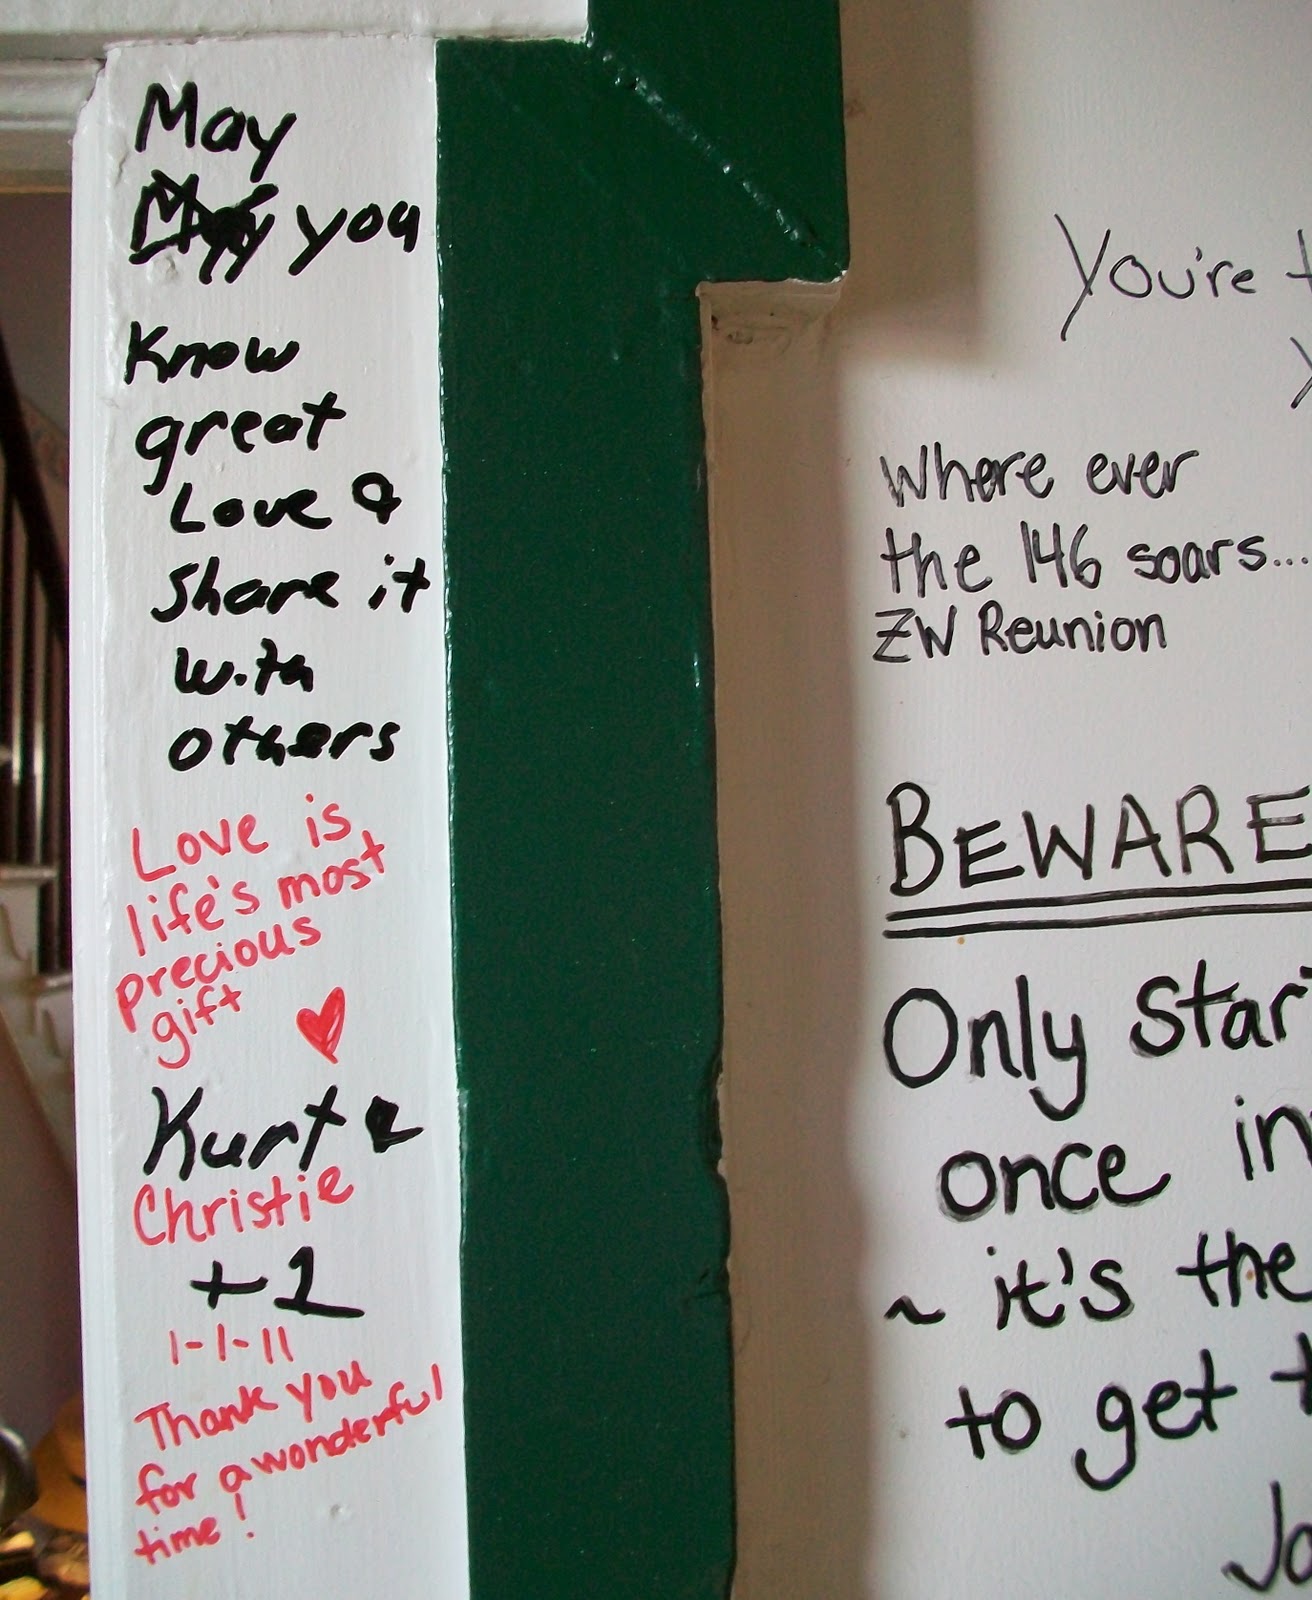 May
you
Know
great
Love &
Share it
with
others
Love is
life's most
precious
gift
Kurt &
Christie
+1
1-1-11
Thank you
for a wonderful
time!
You're
Where ever
the 146 soars...
ZW Reunion
BEWARE
Only star
once in
~ it's the
to get